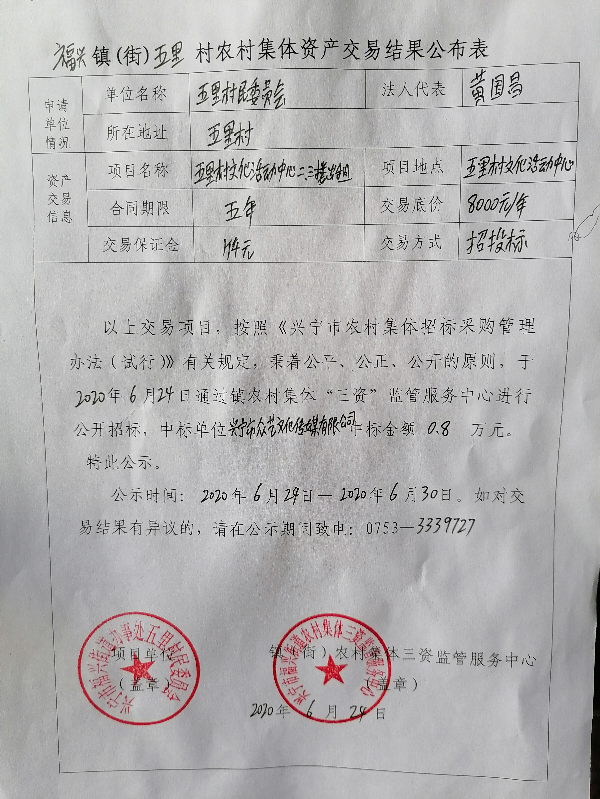 福兴镇(街)五里村农村集体资产交易结果公布表
申请单位情况
单位名称 五里村民委员会 法人代表 黄国昌
所在地址 五里村
资产交易信息
项目名称 五里村文化活动中心二、三楼 项目地点 五里村文化活动中心
合同期限 五年 交易底价 8000元/年
交易保证金 元 交易方式 招投标
以上交易项目,按照《兴宁市农村集体招标采购管理
办法(试行)》有关规定,秉着公平、公正、公开的原则,于
2020年6月24日通过镇农村集体“三资”监管服务中心进行
公开招标,中标单位兴宁市众艺文化传媒有限公司中标金额0.8万元。
特此公示。
公示时间:2020年6月24日—2020年6月30日。如对交
易结果有异议的,请在公示期间致电:0753—3339727
项目单位 镇(街)农村集体三资监管服务中心
(盖章) (盖章)
2020年6月24日
兴宁市福兴街道办事处五里村民委员会
兴宁市福兴街道农村集体三资监管服务中心